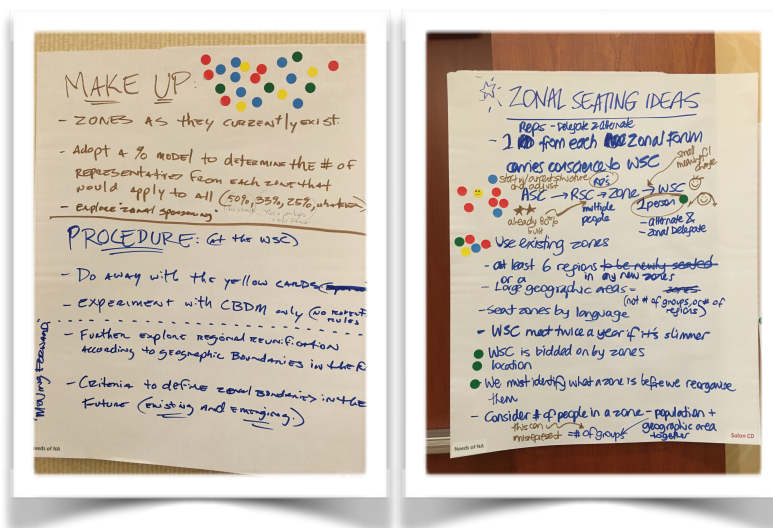 MAKE UP:
- ZONES AS THEY CURRENTLY EXIST.
- Adopt A % model to determine the # of
REPRESENTATIVES FROM EACH ZONE THAT
would APPLY TO ALL (50%, 35%, 25%, whatever)
- EXPLORE "ZONAL SPONSORING"
PROCEDURE: (at the WSC)
- DO AWAY with the yellow CARDS
- EXPERIMENT with CBDM only (NO ROBERTS
RULES
"Moving Forward"
- Further explore REGIONAL REUNIFICATION
ACCORDING to geographic Boundaries in the
- CRITERIA to define zonal Boundaries in the
Future (Existing AND Emerging.)
Needs of NA
ZONAL SEATING IDEAS
Reps - Delegate & alternate
- 1 from each Zonal Forum
carries conscience to WSC
small meaningful
change
start w/ current structure
and adjust
RD's
ASC → RSC → Zone → WSC
already 80%
built
multiple
people
1 person
- alternate &
- zonal Delegate
Use existing zones
- at least 6 regions to be newly seated
in any new zones
or a
- Large geographic areas = zones
(not # of groups, or # of
regions)
- seat zones by language
- WSC meet twice a year if it's slimmer
WSC is bidded on by zones
location
We must identify what a zone is before we reorganise
them
- Consider # of people in a zone - population +
geographic area
together
this can
misrepresent = # of groups
Needs of NA
Salon CD